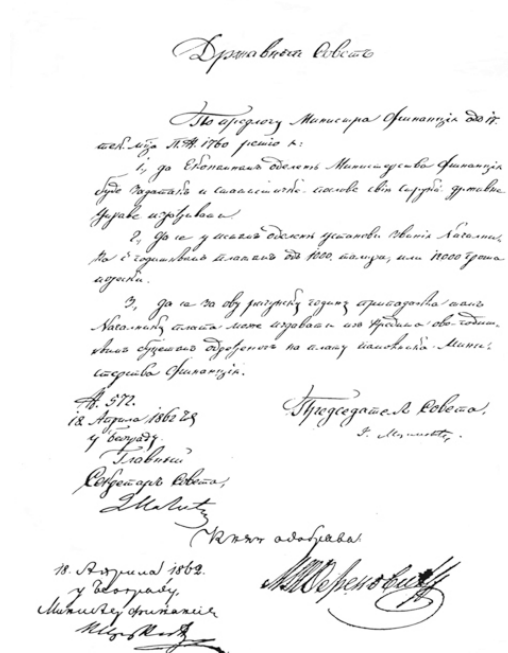 Државный Совѣтъ
По предлогу Министра Финанціи одъ 17.
тек. мца П.№ 1760 решіо є:
1, да Економномъ оделеню Министерства Финанціи
буде задатакъ и статистичне послове свію струка државне
управе израђивати
2, Да се у истомъ оделеню установи званіє Началника
са годишньомъ платомъ одъ 1000. талира, или 12000 гроша
порески.
3, да се за ову рачунску годину припадаюћа томъ
Началнику плата може издавати изъ кредита ово-годиш-
ньимъ буџетомъ одређеногъ на плату помоћника Мини-
стерства Финанціи.
№. 572.
18. Априла 1862 год
у Београду.
Предсѣдатель Совѣта,
Главный
Секретаръ Совѣта,
Князъ одобрава.
18. Априла 1862.
у Београду.
Министеръ Финансіє
М. М. Обреновићъ